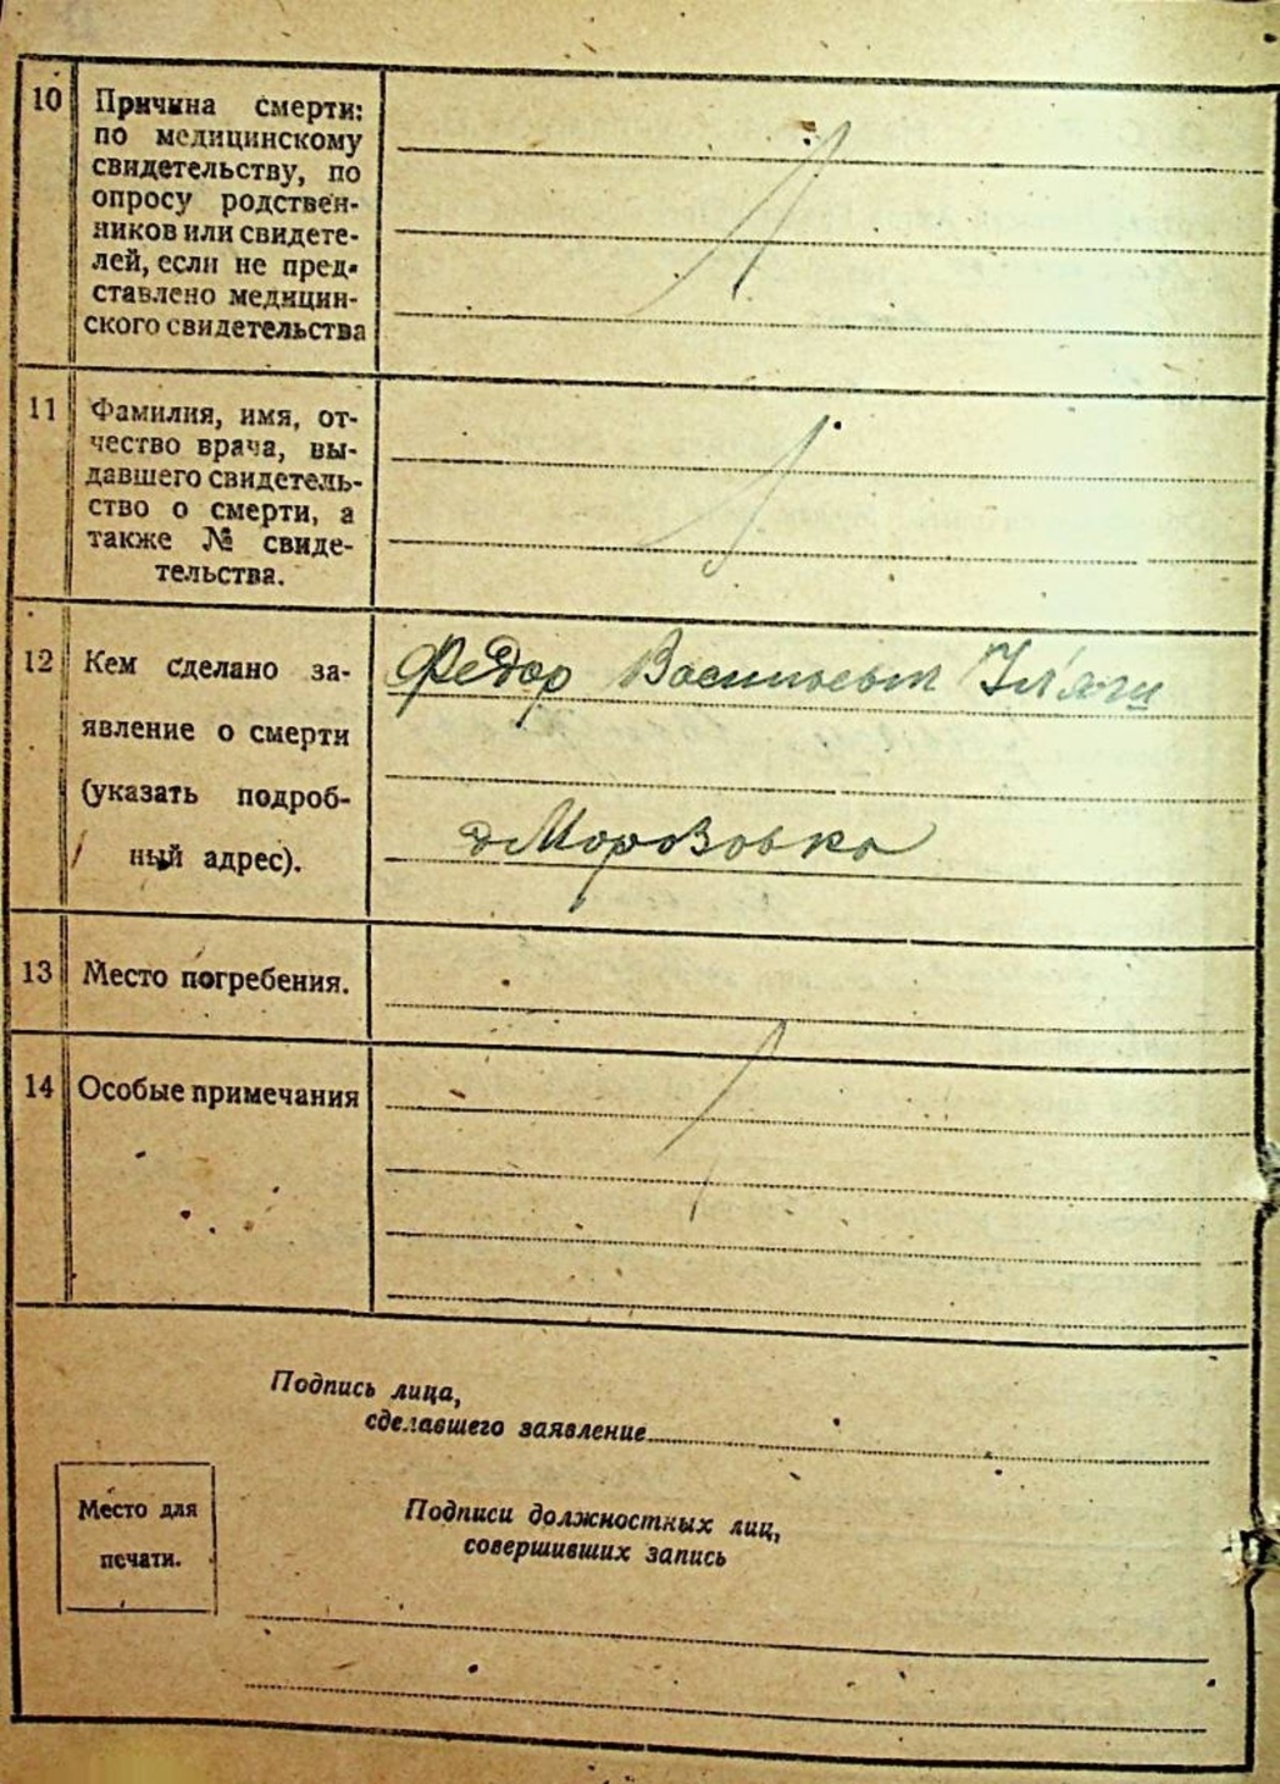 10 Причина смерти:
по медицинскому
свидетельству, по
опросу родствен-
ников или свидете-
лей, если не пред-
ставлено медицин-
ского свидетельства
11 Фамилия, имя, от-
чество врача, вы-
давшего свидетель-
ство о смерти, а
также № свиде-
тельства.
12 Кем сделано за-
явление о смерти
(указать подроб-
ный адрес).
Федор Васильевич
д Морозовка
13 Место погребения.
14 Особые примечания
Подпись лица,
сделавшего заявление
Место для
печати.
Подписи должностных лиц,
совершивших запись